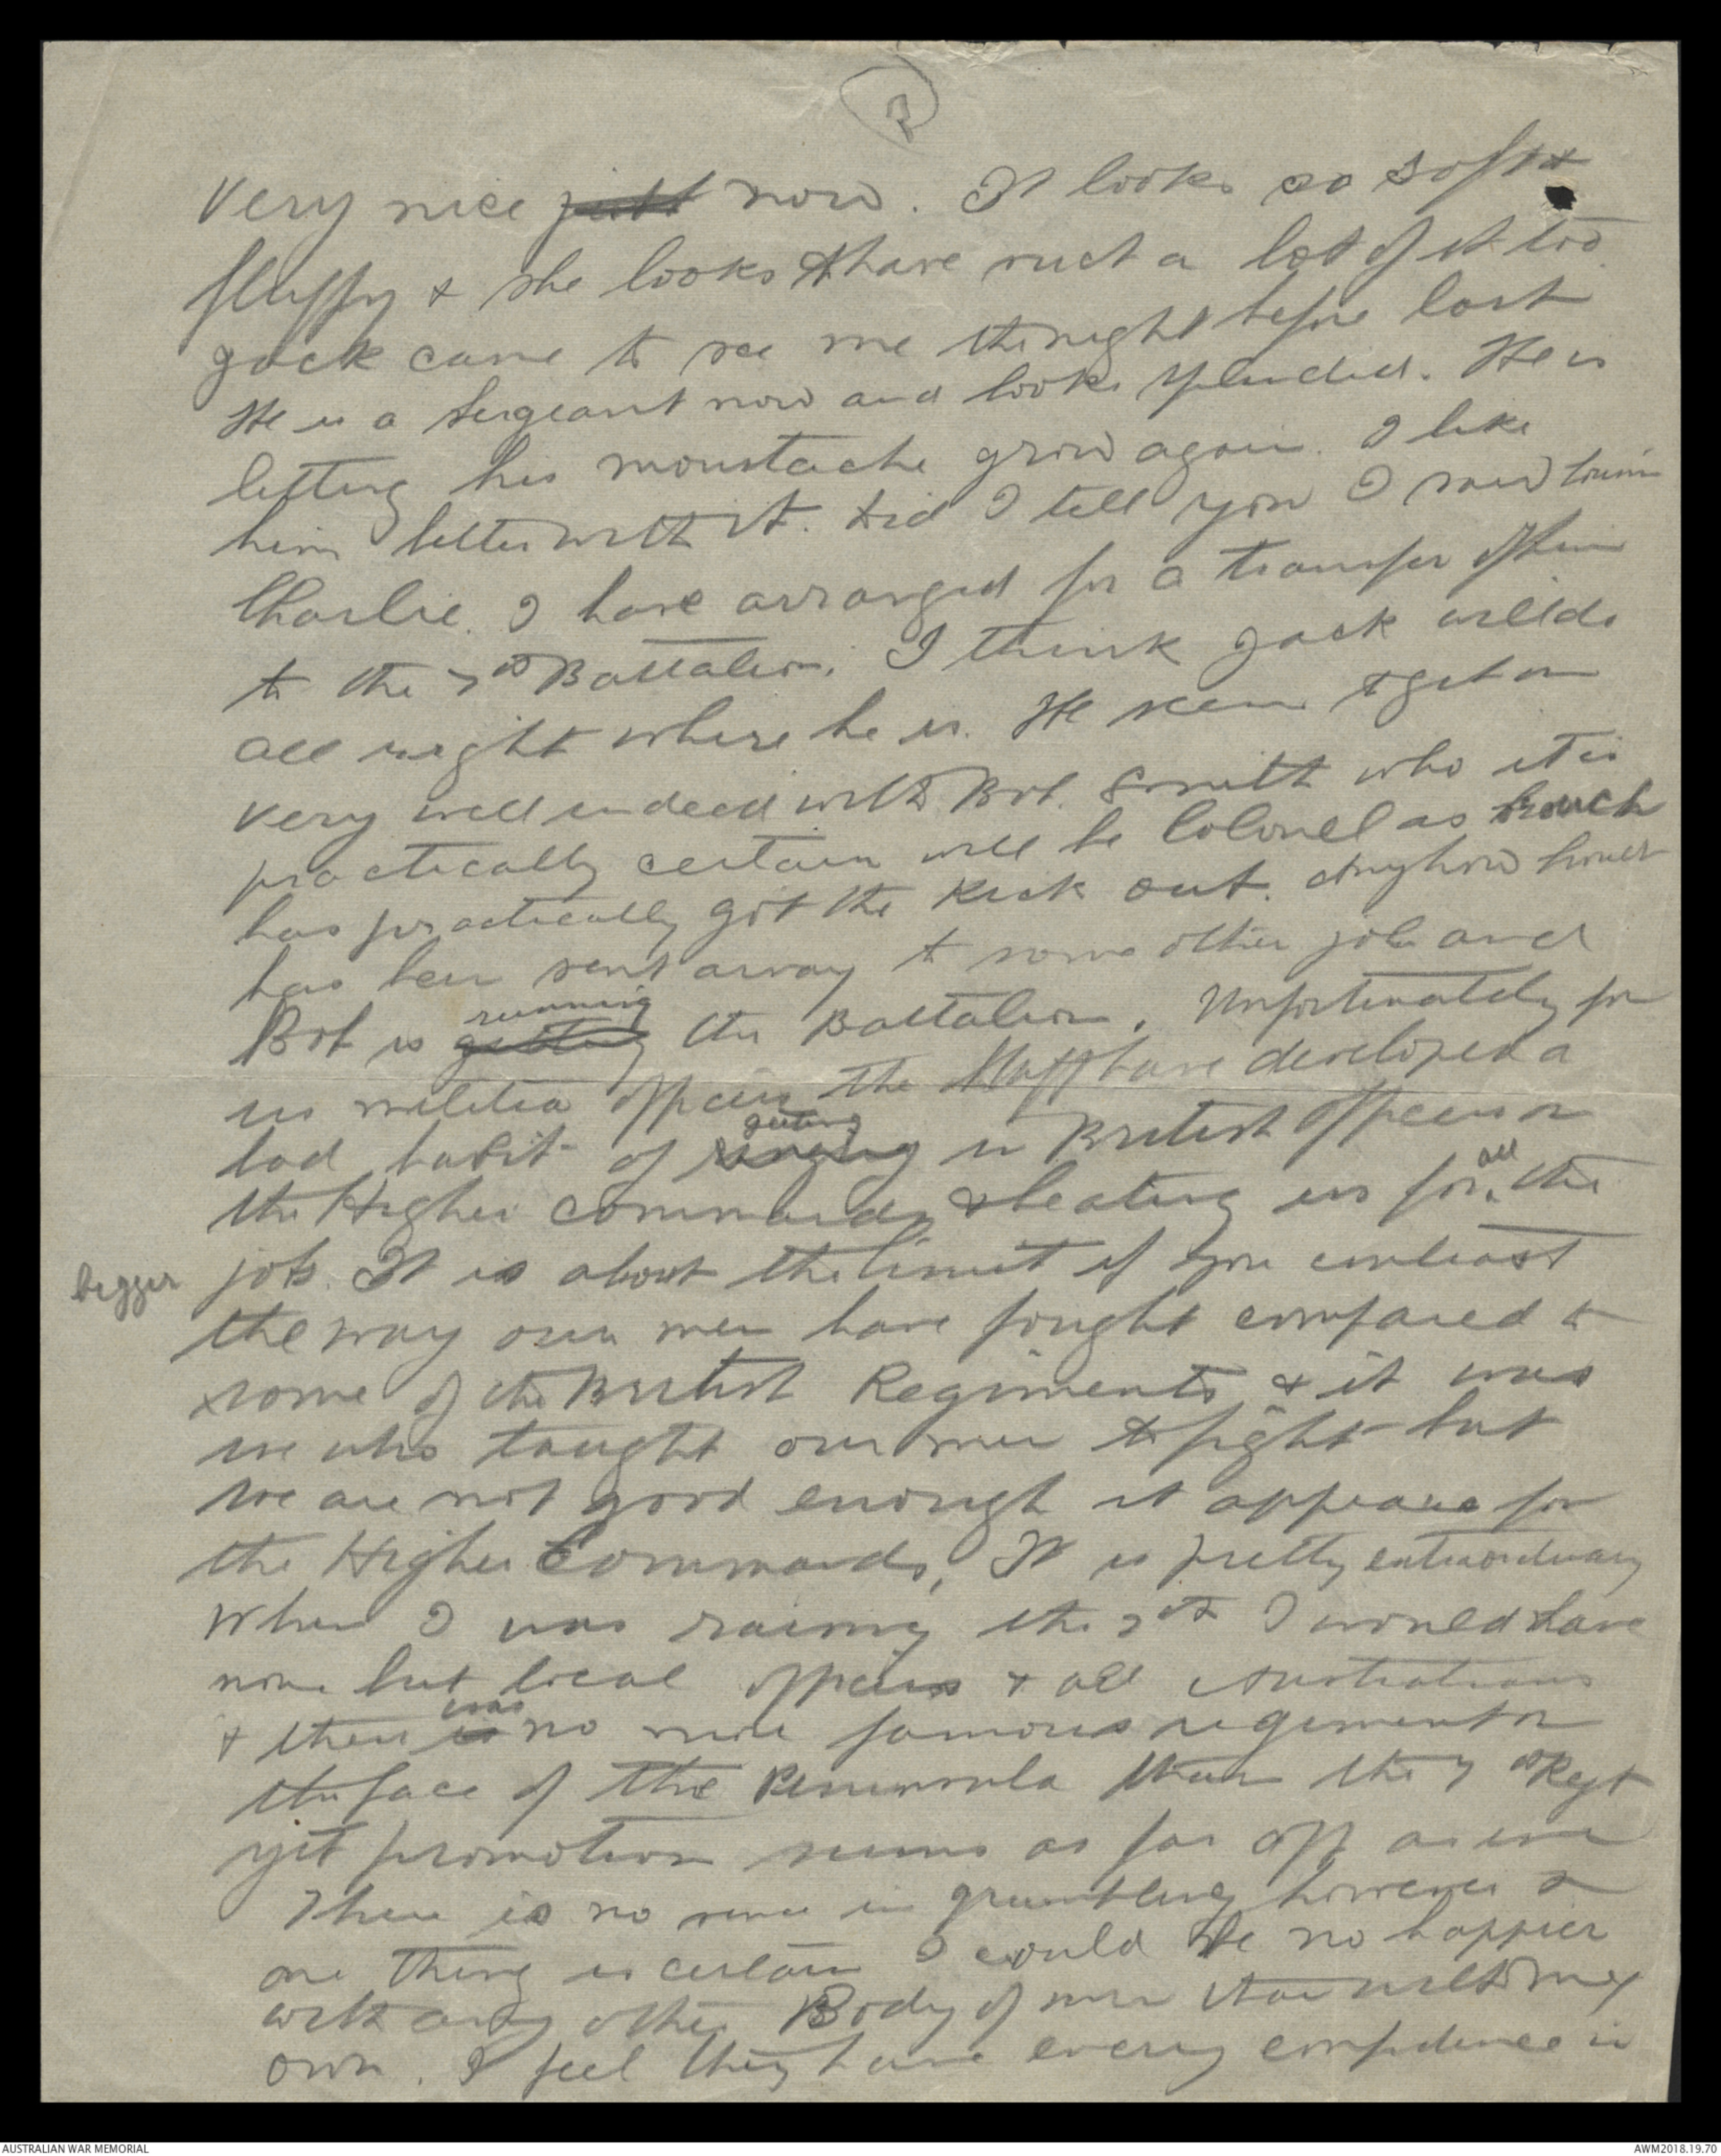 2
Very nice just now. It looks so soft &
fluffy & she looks to have such a lot of it too
Jack came to see me the night before last
He is a Sergeant now and looks splendid. He is
letting his moustache grow again. I like
him better with it. Did I tell you I saw
Charlie. I have arranged for a transfer of him
to the 7th Battalion. I think Jack will do
all right where he is. He seems to get on
very well indeed with Bob. Smith who it is
practically certain will be Colonel as
has practically got the kick out. Anyhow
has been sent away to some other job and
running
Bob is getting the Battalion. Unfortunately for
us militia officers the Staff have developed a
getting
bad habit of in British officers on
all
the Higher commands & beating us for the
bigger job. It is about the limit if you contrast
the way our men have fought compared to
some of the British Regiments & it was
we who taught our men to fight but
we are not good enough it appears for
the Higher Commands, It is pretty extraordinary
When I was raising the 7th I would have
none but local officers & all Australians
was
& there is no more famous regiment on
the face of the Peninsula than the 7th Regt
yet promotion seems as far off as ever
There is no sense in grumbling however &
one thing is certain I could be no happier
with any other Body of men than with my
own. I feel they have every confidence in
AUSTRALIAN WAR MEMORIAL
AWM2018.19.70